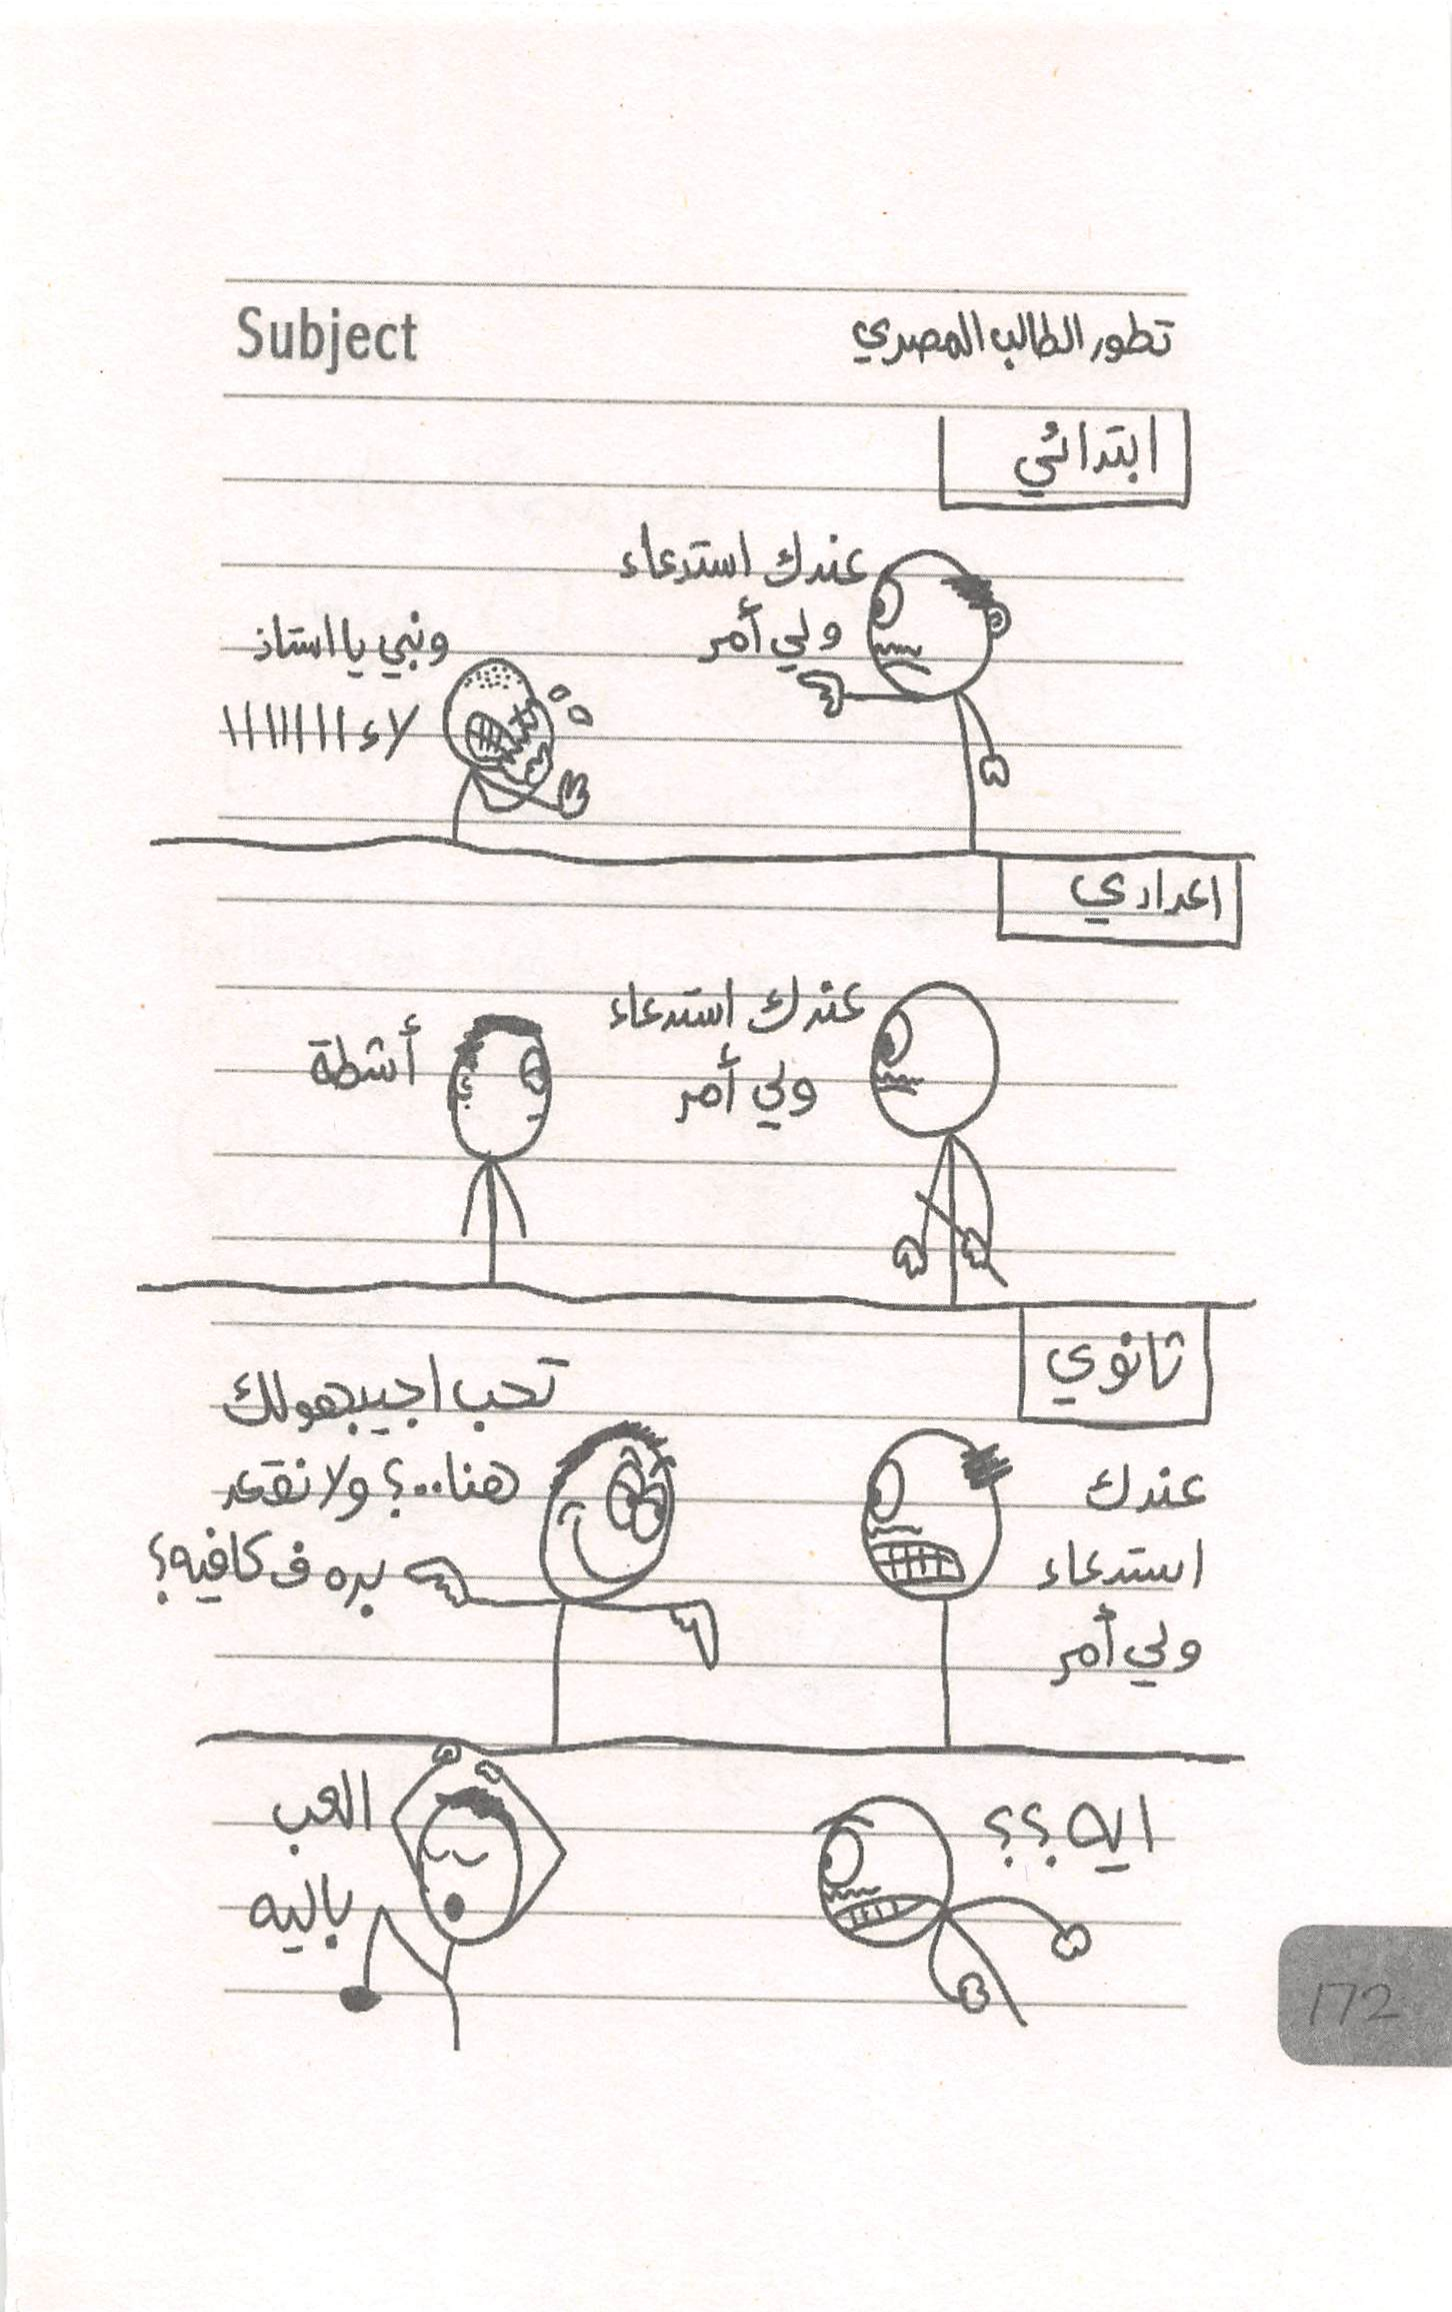 Subject
تطور الطالب المصري
ابتدائي
عندك استدعاء
ولي أمر
ونبي يا استاذ
لاء ااااااااا
اعدادي
عندك استدعاء
ولي أمر
أشطة
ثانوي
عندك
استدعاء
ولي أمر
تحب اجيبهولك
هنا..؟ ولا نقعد
بره ف كافيه؟
ايه؟؟
العب
باليه
172